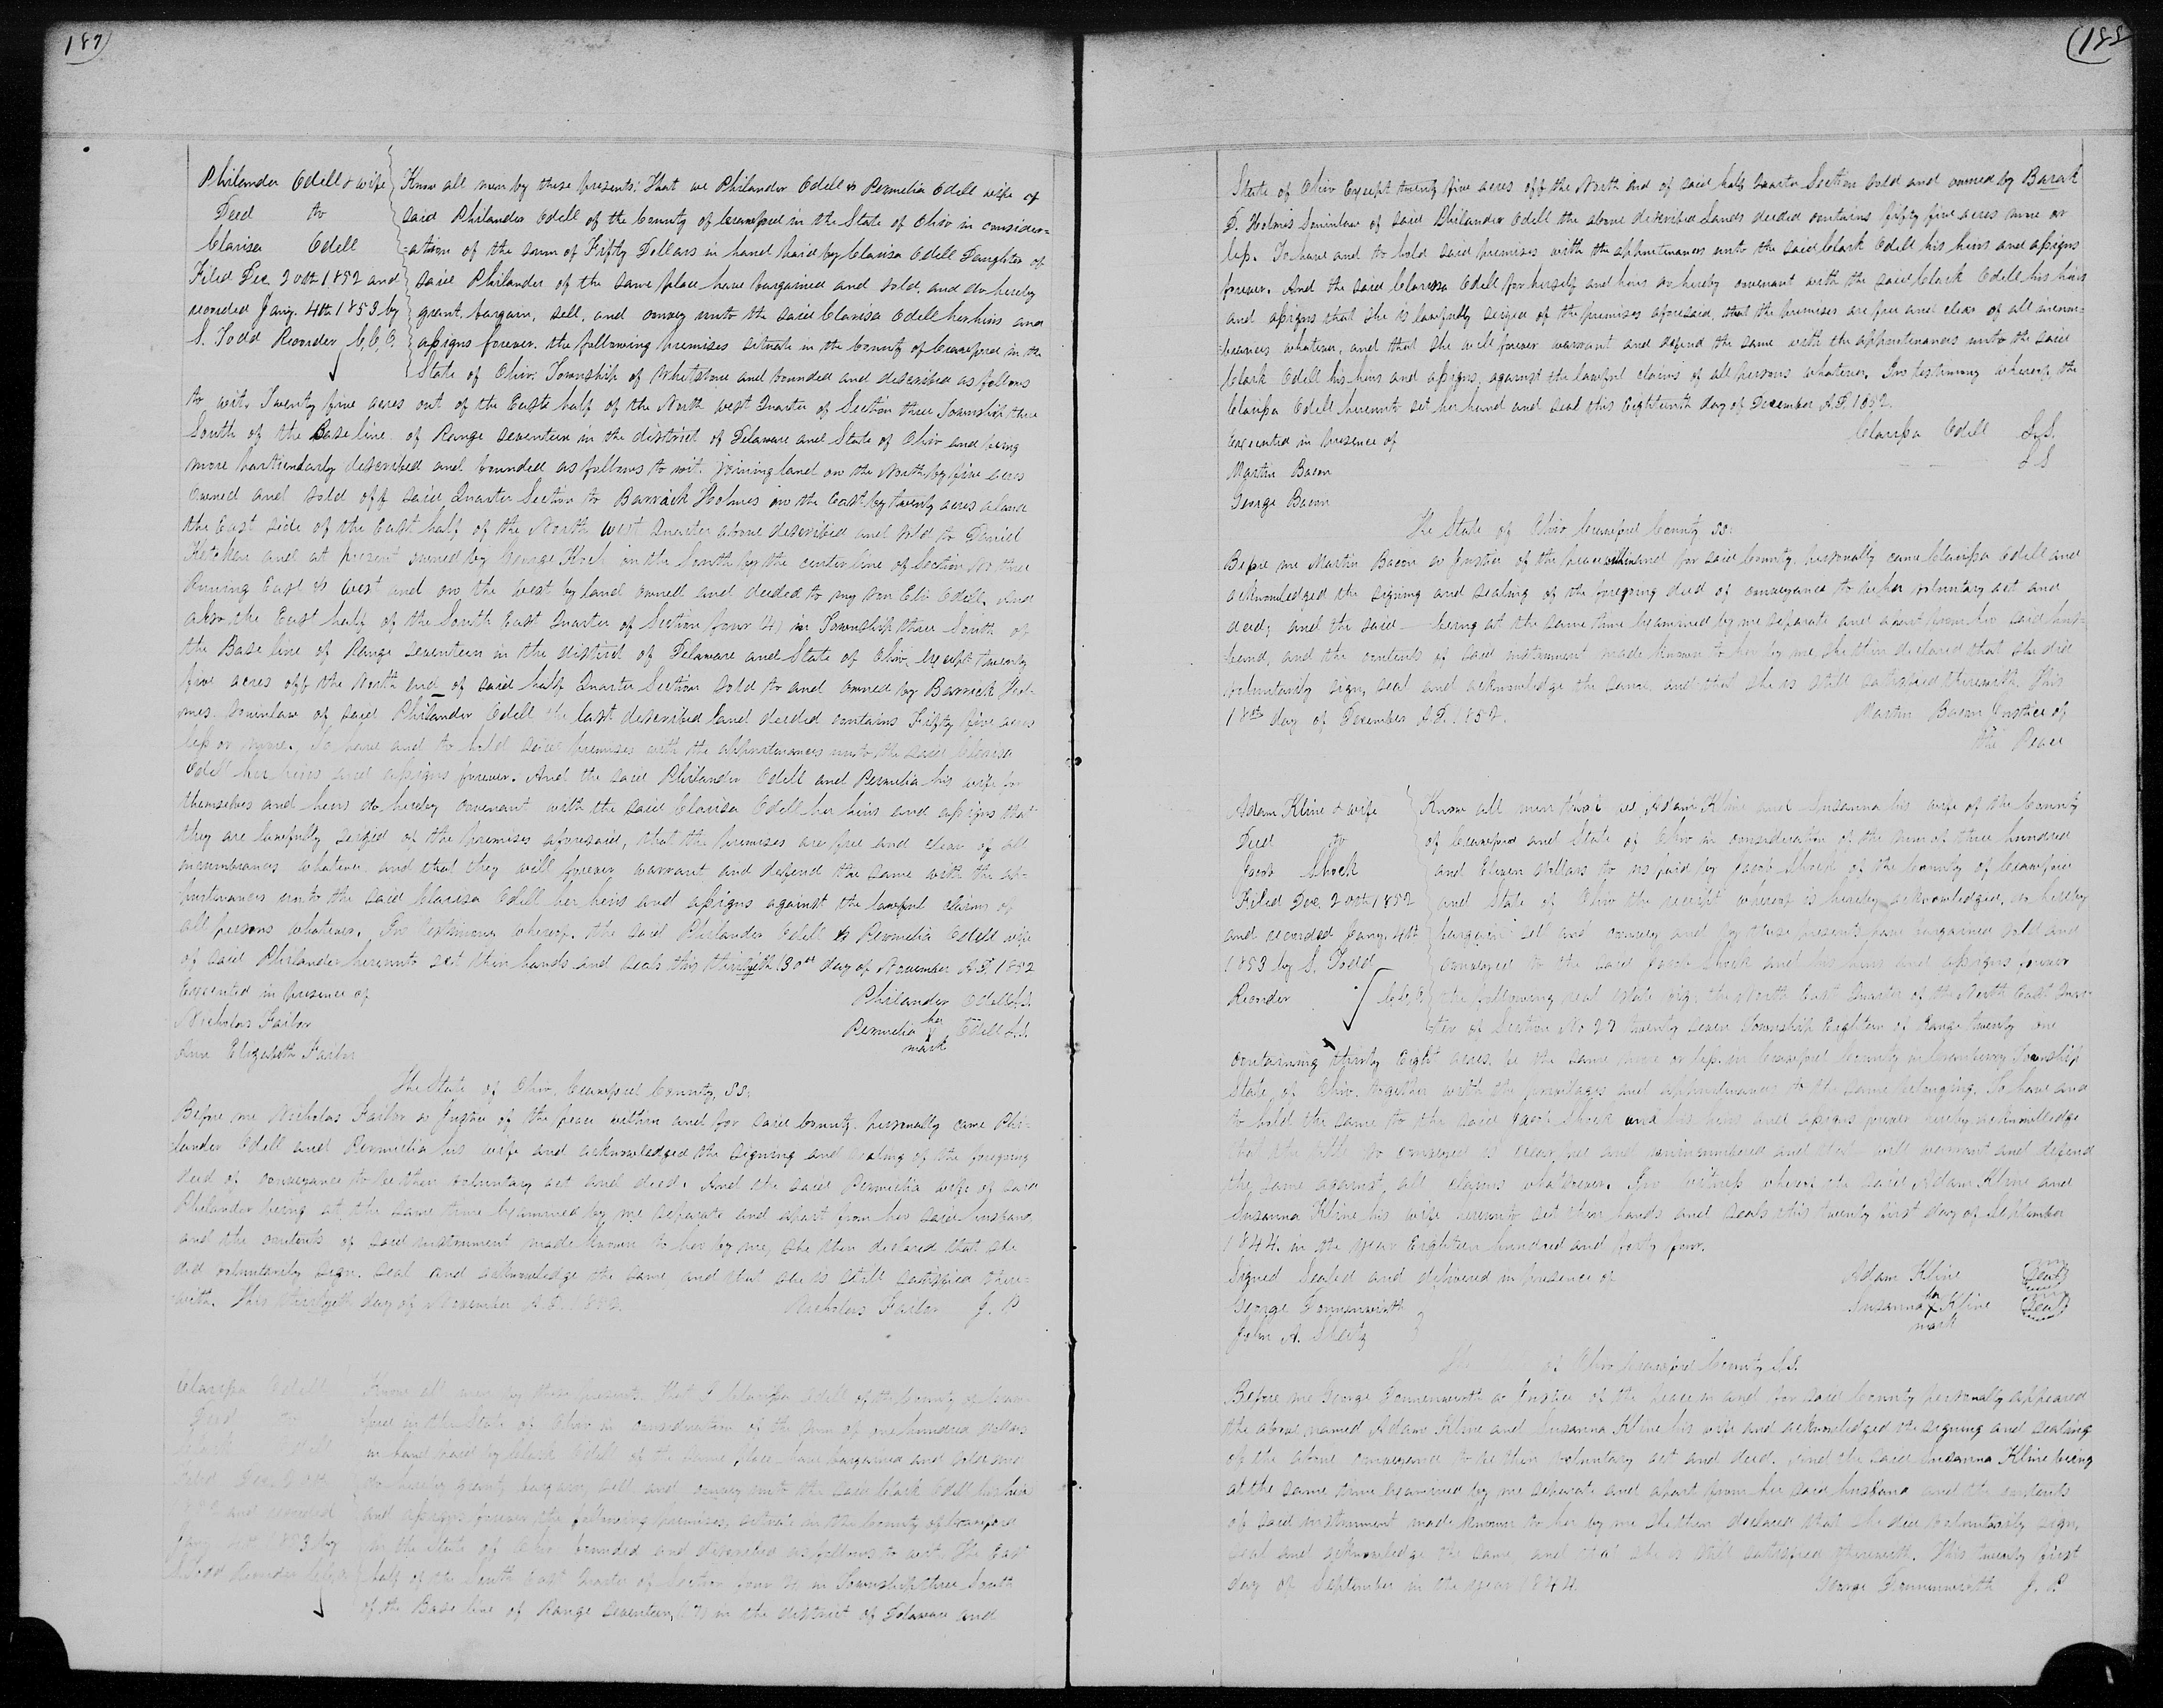 187)
Philander Odell & wife
Deed to
Clarisa Odell
Filed Dec. 20th 1852 and
recorded Jany. 4th 1853 by
S. Todd Recorder C.C.O.
Know all men by these presents: That we Philander Odell & Permelia Odell wife of
said Philander Odell of the County of Crawford in the State of Ohio in consider=
=ation of the sum of Fifty Dollars in hand paid by Clarisa Odell Daughter of
said Philander of the same place have bargained and sold, and do hereby
grant, bargain, sell, and convey unto the said Clarisa Odell her heirs and
assigns forever. the following premises situate in the County of Crawford in the
State of Ohio. Township of Whetstone and bounded and described as follows
to wit. Twenty five acres out of the East half of the North west Quarter of Section three Township three
South of the Base line of Range Seventeen in the district of Delaware and State of Ohio and being
more particularly described and bounded as follows to wit. joining land on the North by five acres
owned and sold off said Quarter Section to Barrack Holmes on the East by twenty acres
the East side of the East half of the North West Quarter above described and sold to Daniel
and at present owned by George Koch on the South by the center line of Section No three
Running East & West and on the West by land owned and deeded to my son Eli Odell. And
also the East half of the South East Quarter of Section four (4) in Township three South of
the Base line of Range Seventeen in the district of Delaware and State of Ohio, except twenty
five acres off the North end of said half Quarter Section sold to and owned by Barrick Hol-
mes. Soninlaw of said Philander Odell the last described land deeded contains Fifty five acres
less or more. To have and to hold said premises with the appurtenances unto the said Clarisa
Odell her heirs and assigns forever. And the said Philander Odell and Permelia his wife for
themselves and heirs do hereby covenant with the said Clarisa Odell her heirs and assigns that
they are lawfully seized of the premises aforesaid, that the premises are free and clear of all
incumbrances whatever and that they will forever warrant and defend the same with the ap-
purtenances unto the said Clarisa Odell her heirs and assigns against the lawful claims of
all persons whatever. In testimony whereof. the said Philander Odell & Permelia Odell wife
of said Philander hereunto set their hands and seals this thirtyeth 30th day of November A.D. 1852
Executed in presence of
Philander Odell L.S.
Nicholas Failor
Permelia her X mark Odell L.S.
Ann Elizabeth Failor
The State of Ohio, Crawford County, SS.
Before me Nicholas Failor a Justice of the peace within and for said County. personally came Phi-
lander Odell and Permelia his wife and acknowledged the signing and sealing of the foregoing
deed of conveyance to be their voluntary act and deed. And the said Permelia wife of said
Philander being at the same time examined by me separate and apart from her said husband,
and the contents of said instrument made known to her by me, she then declared that she
did voluntarily sign. seal and acknowledge the same and that she is still satisfied there=
=with. This thirtyeth day of November A.D. 1852.
Nicholas Failor J. P
Clarissa Odell
Deed to
Clark Odell
Filed Dec. 20th
1852 and recorded
Jany 4th 1853 by
S. Todd Recorder
Know all men by these presents that I Clarissa Odell of the County of Craw-
ford in the State of Ohio in consideration of the sum of one hundred dollars
in hand paid by Clark Odell of the same place have bargained and sold and
do hereby grant, bargain, sell and convey unto the said Clark Odell his heirs
and assigns forever the following premises, situate in the County of Crawford
in the State of Ohio bounded and described as follows to wit. The East
half of the South East Quarter of Section four (4) in Township three South
of the Base line of Range Seventeen, (17) in the district of Delaware and
(188
State of Ohio Except twenty five acres off the North end of said half Quarter Section sold and owned by Barak
D. Holmes Soninlaw of said Philander Odell the above described Lands deeded contains fifty five acres more or
less. To have and to hold said premises with the appurtenances unto the said Clark Odell his heirs and assigns
forever. And the said Clarissa Odell for herself and heirs do hereby covenant with the said Clark Odell his heirs
and assigns that she is lawfully seized of the premises aforesaid, that the premises are free and clear of all incum-
=brances whatever, and that she will forever warrant and defend the same with the appurtenances unto the said
Clark Odell his heirs and assigns, against the lawful claims of all persons whatever. In testimony whereof, the
Clarissa Odell hereunto set her hand and seal this Eighteenth day of December A.D. 1852.
Executed in presence of
Clarissa Odell L.S.
Martin Bacon
L.S
George Bacon
The State of Ohio Crawford County SS.
Before me Martin Bacon a Justice of the peace within and for said County, personally came Clarissa Odell and
acknowledged the signing and sealing of the foregoing deed of conveyance to be her voluntary act and
deed; and the said — being at the same time examined by me separate and apart from her said hus-
band, and the contents of said instrument made known to her by me, she then declared that she did
voluntarily sign, seal and acknowledge the same, and that she is still satisfied therewith. This
18th day of December A.D. 1852.
Martin Bacon Justice of
the Peace
Adam Kline & wife
Deed to
Jacob Shock
Filed Dec. 20th 1852
and recorded Jany. 4th
1853 by S. Todd
Recorder C.C.O.
Know all men that we Adam Kline and Susanna his wife of the County
of Crawford and State of Ohio in consideration of the sum of three hundred
and Eleven dollars to us paid by Jacob Shock of the County of Crawford
and State of Ohio the receipt whereof is hereby acknowledged, do hereby
bargain sell and convey and by these presents have bargained sold and
conveyed to the said Jacob Shock and his heirs and assigns forever
the following real estate viz. the North East Quarter of the North East Quar-
ter of Section No 27 twenty seven Township Eighteen of Range twenty one
containing thirty Eight acres. be the same more or less, in Crawford County in Cranberry Township
State of Ohio. together with the privilages and appurtenances to the same belonging. To have and
to hold the same to the said Jacob Shock and his heirs and assigns forever hereby acknowledge
that the title so conveyed is clear, free and unincumbered and that will warrant and defend
the same against all claims whatsoever. In witness whereof the said Adam Kline and
Susanna Kline his wife hereunto set their hands and seals this twenty first day of September
1844. in the year Eighteen hundred and forty four.
Signed Sealed and delivered in presence of
Adam Kline Seal
George Donnenwirth
Susanna her X mark Kline Seal
John A. Sheetz
of Ohio Crawford County S.S.
Before me George Donnenwirth a Justice of the peace in and for said County personally appeared
the above named Adam Kline and Susanna Kline his wife and acknowledged the signing and sealing
of the above conveyance to be their voluntary act and deed. And the said Susanna Kline being
at the same time examined by me separate and apart from her said husband and the contents
of said instrument made known to her by me she then declared that she did voluntarily sign,
seal and acknowledge the same, and that she is still satisfied therewith. This twenty first
day of September in the year 1844.
George Donnenwirth J. P